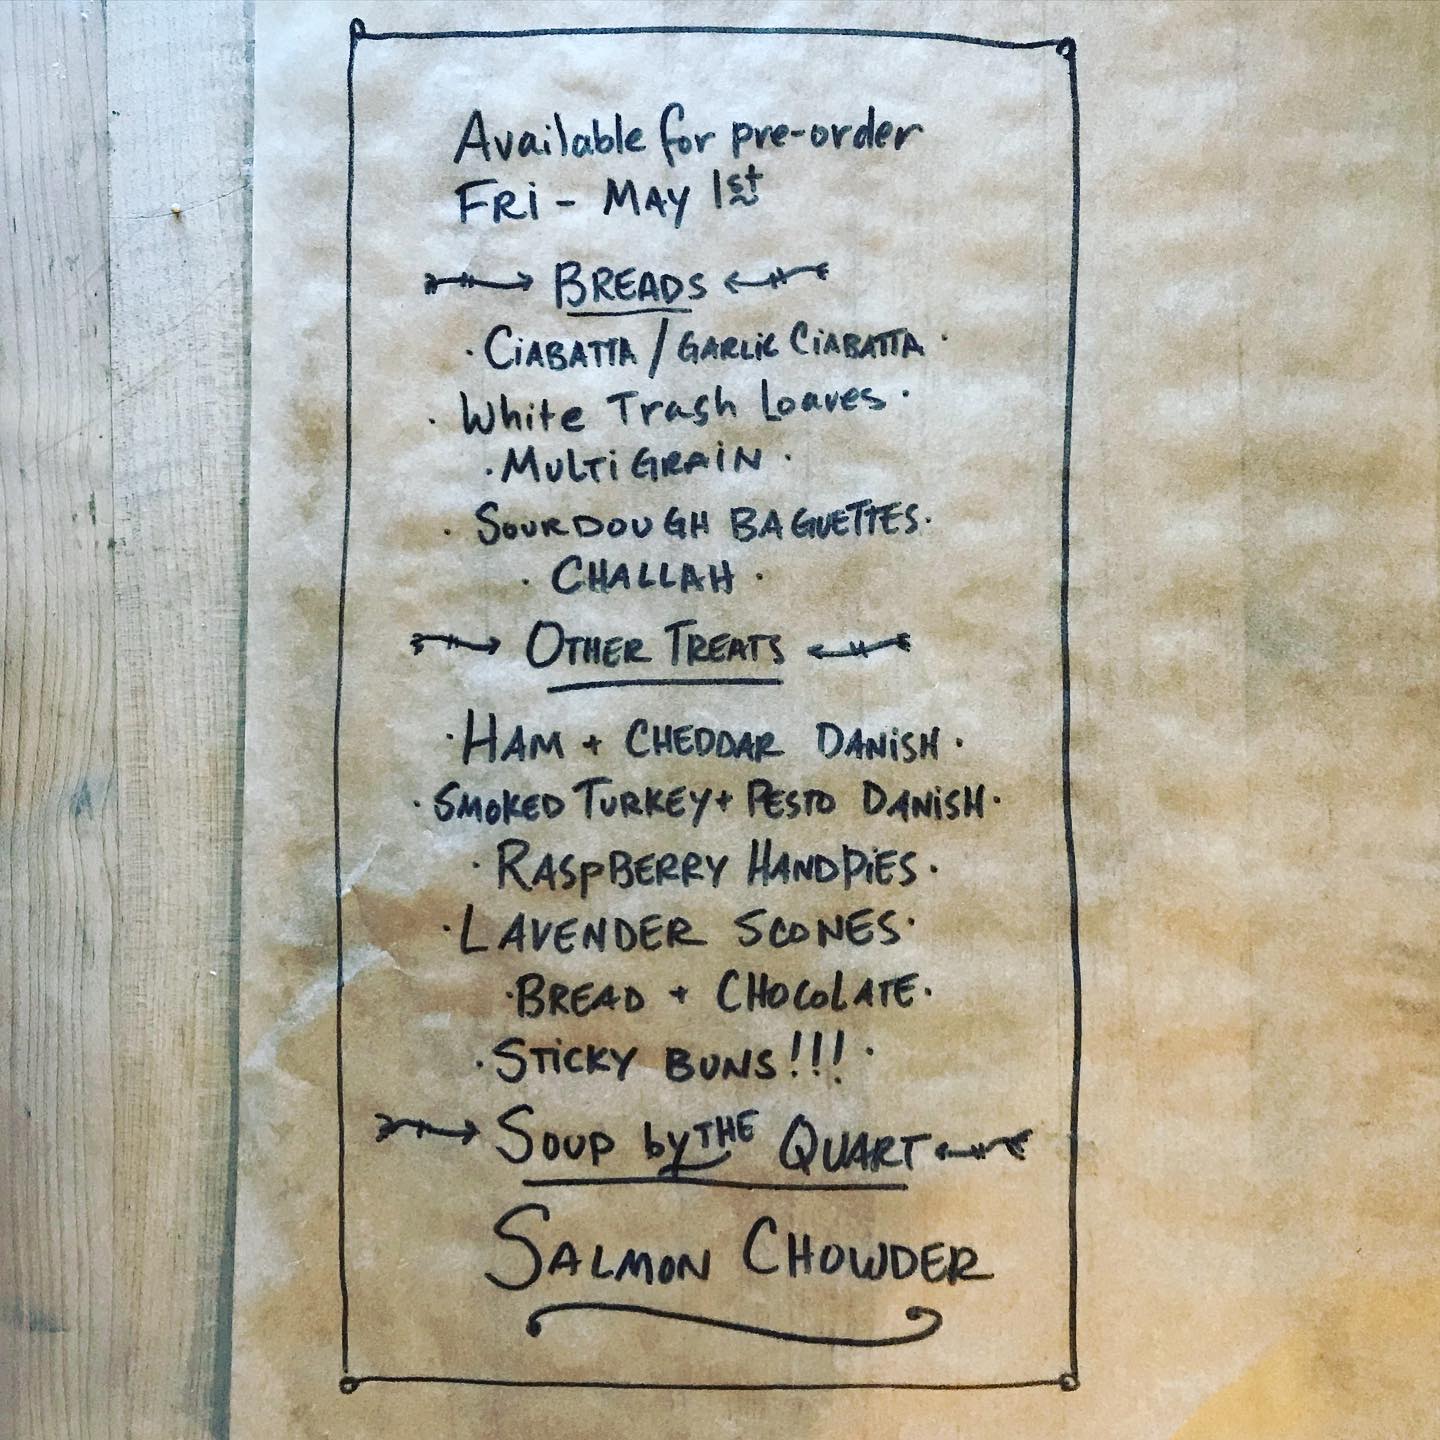 Available for pre-order
FRi - MAY 1st
BREADS
· CiABATTA / GARLIC CiABATTA ·
· White Trash Loaves ·
· MULTiGRAiN ·
· SOURDOUGH BAGUETTES ·
· CHALLAH ·
OTHER TREATS
· HAM + CHEDDAR DANiSH ·
· SMOKED TURKEY + PESTO DANiSH ·
· RASpBERRY HANDPiES ·
· LAVENDER SCONES ·
· BREAD + CHOCOLATE ·
· STiCKY BUNS!!! ·
SOUP by THE QUART
SALMON CHOWDER